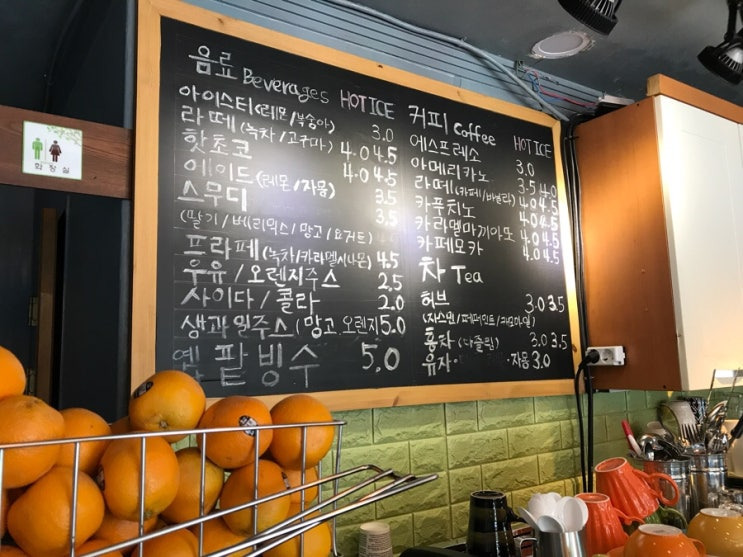 화장실
음료 Beverages HOT ICE
아이스티(레몬/복숭아) 3.0
라떼(녹차/고구마) 4.0 4.5
핫초코 4.0 4.5
에이드(레몬/자몽) 3.5
스무디 3.5
(딸기/베리믹스/망고/요거트)
프라페(녹차/카라멜시나몬) 4.5
우유/오렌지주스 2.5
사이다/콜라 2.0
생과일주스(망고.오렌지 5.0
옛 팥빙수 5.0
커피 Coffee HOT ICE
에스프레소 3.0
아메리카노 3.5 4.0
라떼(카페/바닐라) 4.0 4.5
카푸치노 4.0 4.5
카라멜마끼아또 4.0 4.5
카페모카 4.0 4.5
차 Tea
허브 3.0 3.5
(자스민/페퍼민트/캐모마일)
홍차(다즐링) 3.0 3.5
유자· ·자몽 3.0